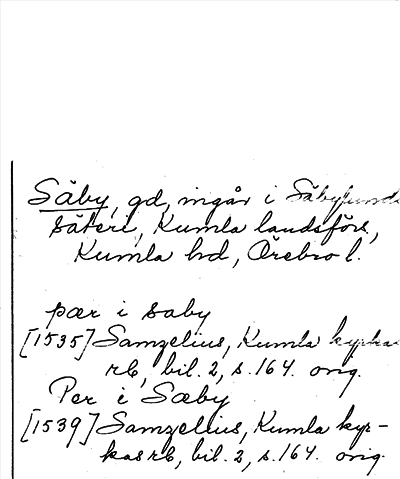 Säby, gd, ingår i Säbylunds
säteri, Kumla landsförs,
Kumla hd, Örebro l.
pær i saby
[1535] Samzelius, Kumla kyrkas
rb, bil. 2, s. 164. orig.
Per i Sæby
[1539] Samzelius, Kumla kyr-
kas rb, bil. 2, s. 164. orig.